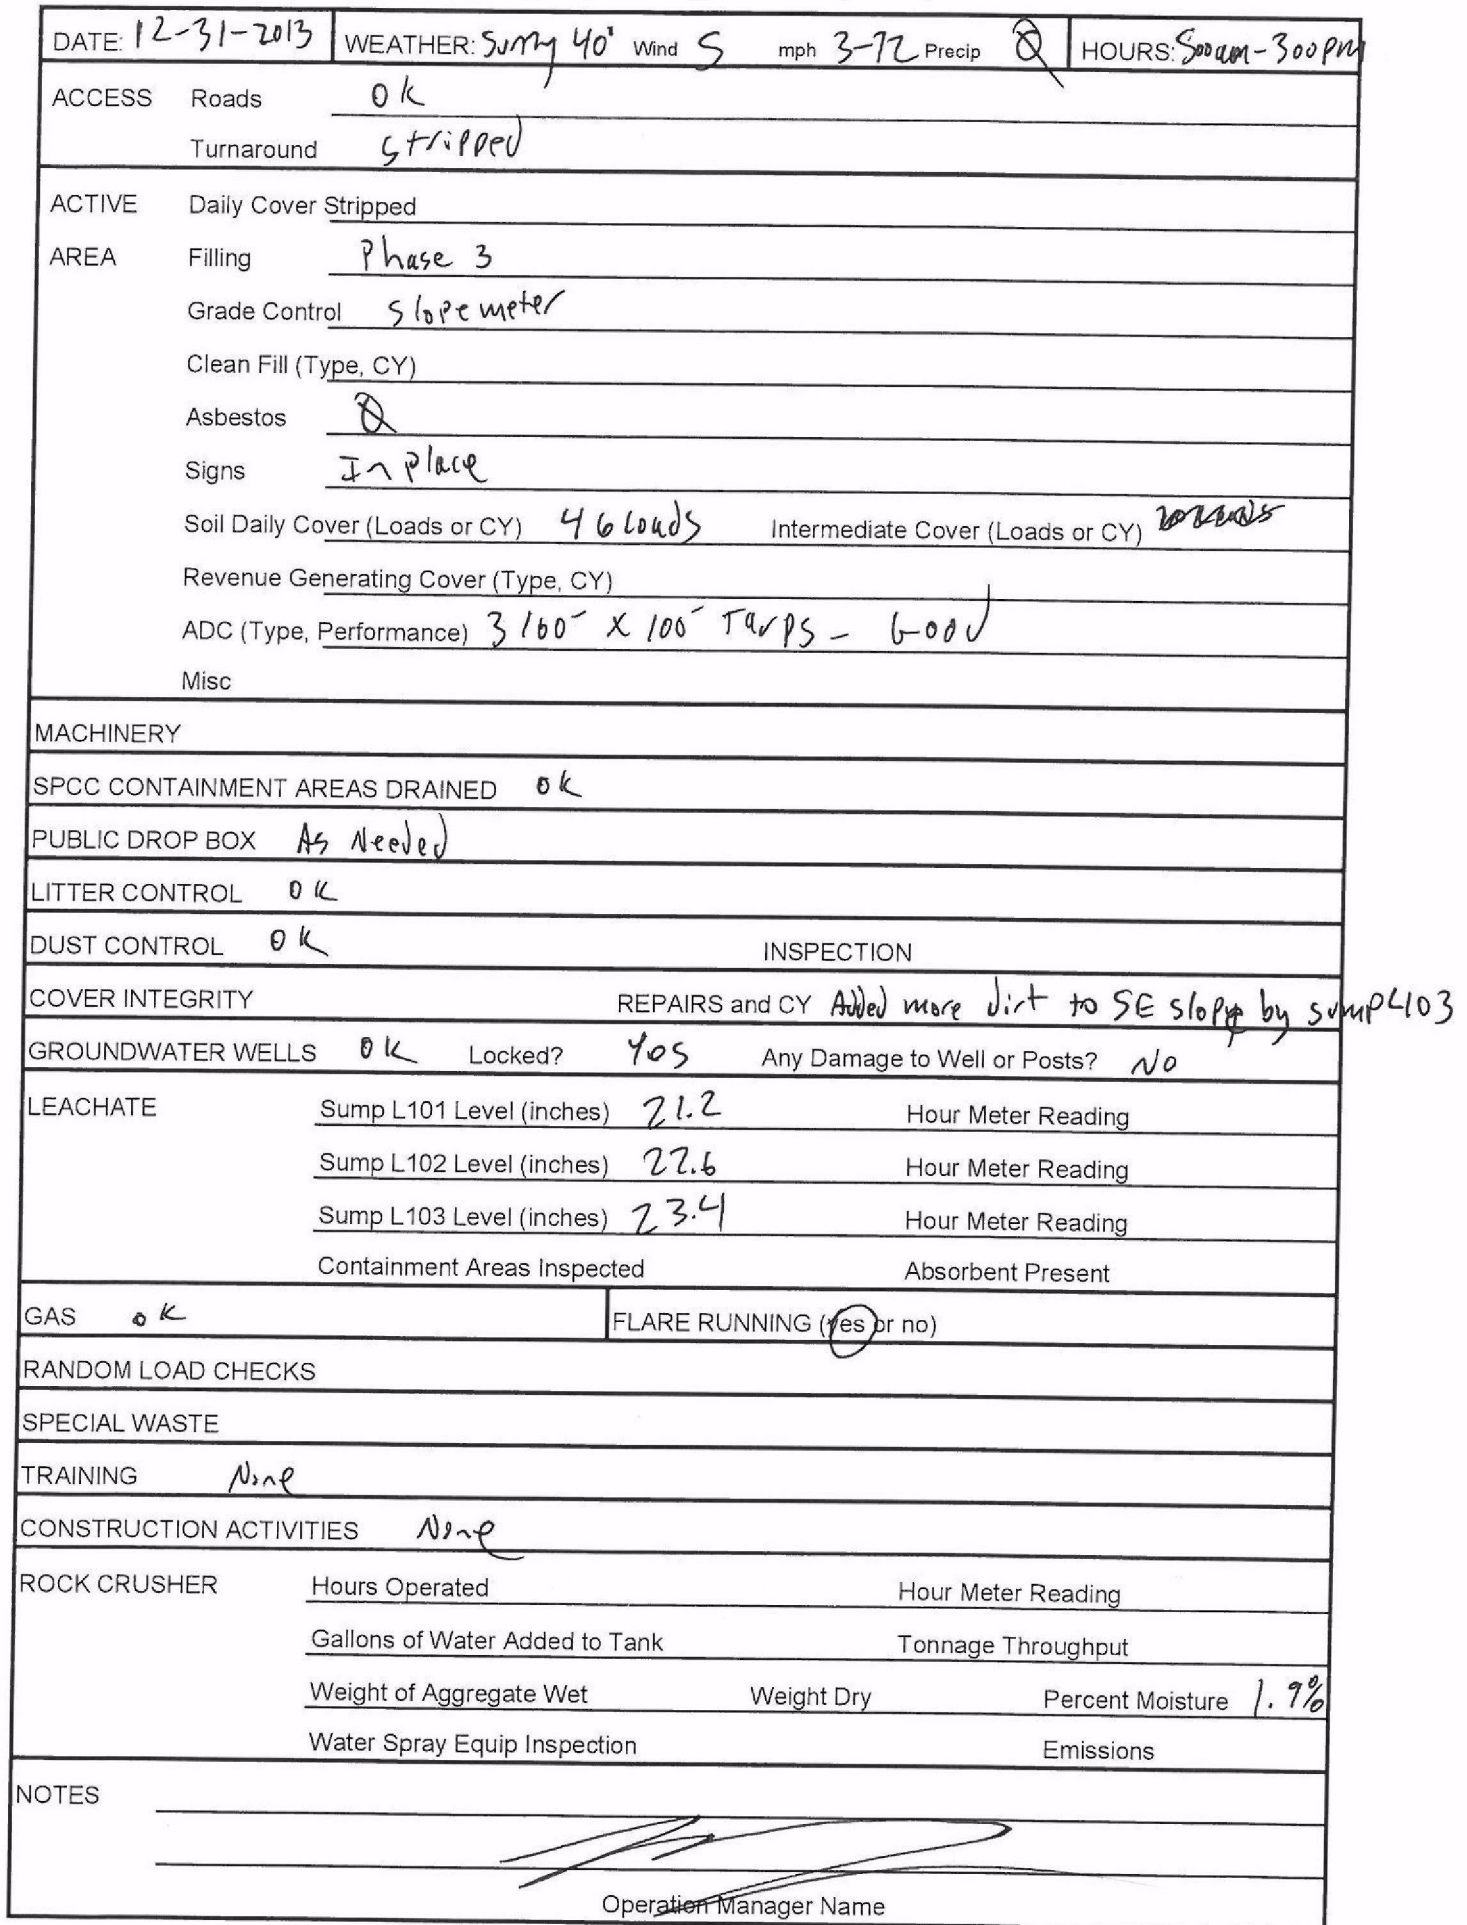 DATE: 12-31-2013 WEATHER: Sunny 40° Wind S mph 3-12 Precip Ø HOURS: 500am-300pm
ACCESS Roads OK
Turnaround stripped
ACTIVE Daily Cover Stripped
AREA Filling Phase 3
Grade Control Slopemeter
Clean Fill (Type, CY)
Asbestos Ø
Signs In place
Soil Daily Cover (Loads or CY) 46 loads Intermediate Cover (Loads or CY)
Revenue Generating Cover (Type, CY)
ADC (Type, Performance) 3 100- x 100- Tarps - Good
Misc
MACHINERY
SPCC CONTAINMENT AREAS DRAINED OK
PUBLIC DROP BOX As Needed
LITTER CONTROL OK
DUST CONTROL OK INSPECTION
COVER INTEGRITY REPAIRS and CY Added more dirt to SE slope by sump L103
GROUNDWATER WELLS OK Locked? Yes Any Damage to Well or Posts? No
LEACHATE Sump L101 Level (inches) 21.2 Hour Meter Reading
Sump L102 Level (inches) 22.6 Hour Meter Reading
Sump L103 Level (inches) 23.4 Hour Meter Reading
Containment Areas Inspected Absorbent Present
GAS OK FLARE RUNNING (yes or no)
RANDOM LOAD CHECKS
SPECIAL WASTE
TRAINING None
CONSTRUCTION ACTIVITIES None
ROCK CRUSHER Hours Operated Hour Meter Reading
Gallons of Water Added to Tank Tonnage Throughput
Weight of Aggregate Wet Weight Dry Percent Moisture 1.9%
Water Spray Equip Inspection Emissions
NOTES
Operation Manager Name